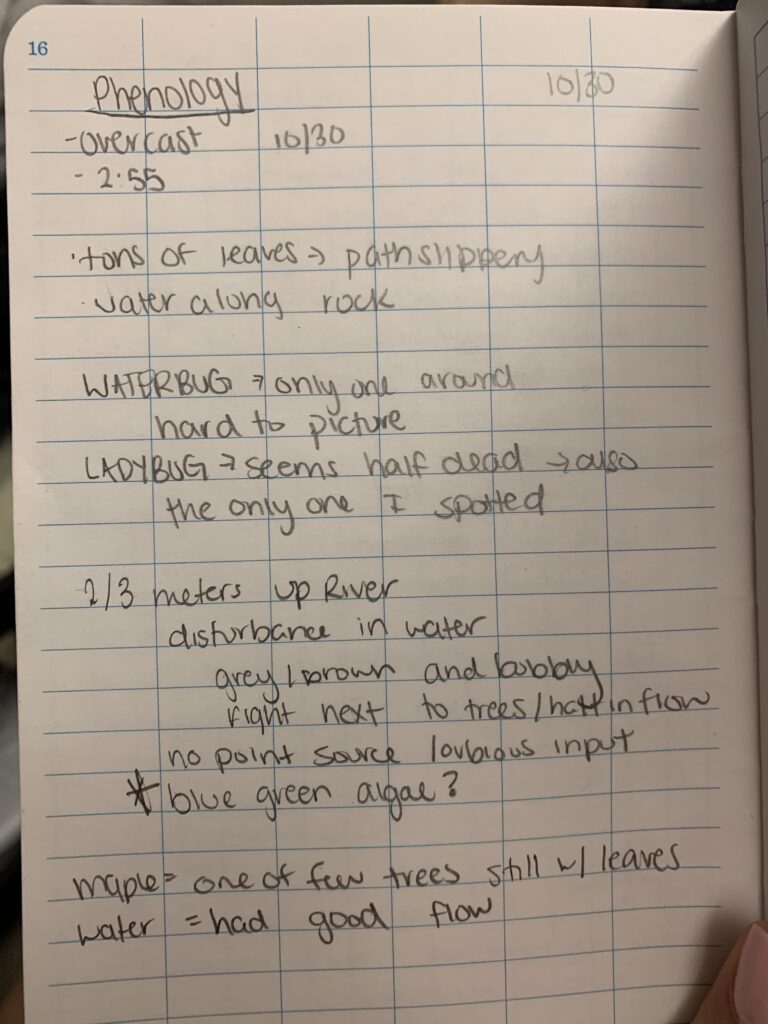 16
Phenology 10/30
-overcast 10/30
- 2:55
·tons of leaves → path slippery
·water along rock
WATERBUG → only one around
hard to picture
LADYBUG → seems half dead → also
the only one I spotted
2/3 meters up River
disturbance in water
grey/brown and bubbly
right next to trees/ in flow
no point source /ovbious input
* blue green algae?
maple= one of few trees still w/ leaves
water = had good flow